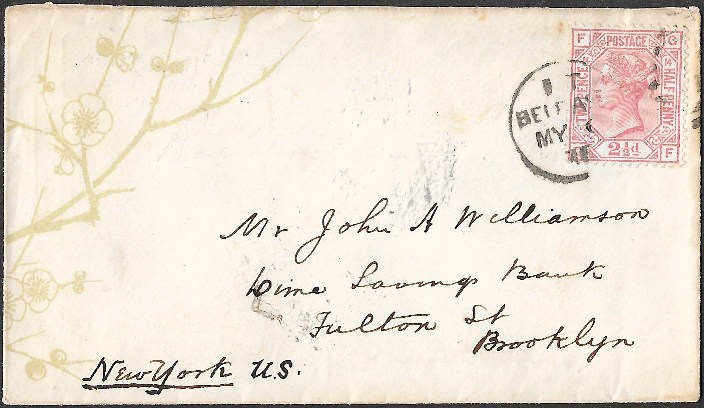 F POSTAGE G
TWO PENCE
HALF PENNY
2½d F
BELFA
MY
Mr John A Williamson
Dime Savings Bank
Fulton St
Brooklyn
New York U.S.